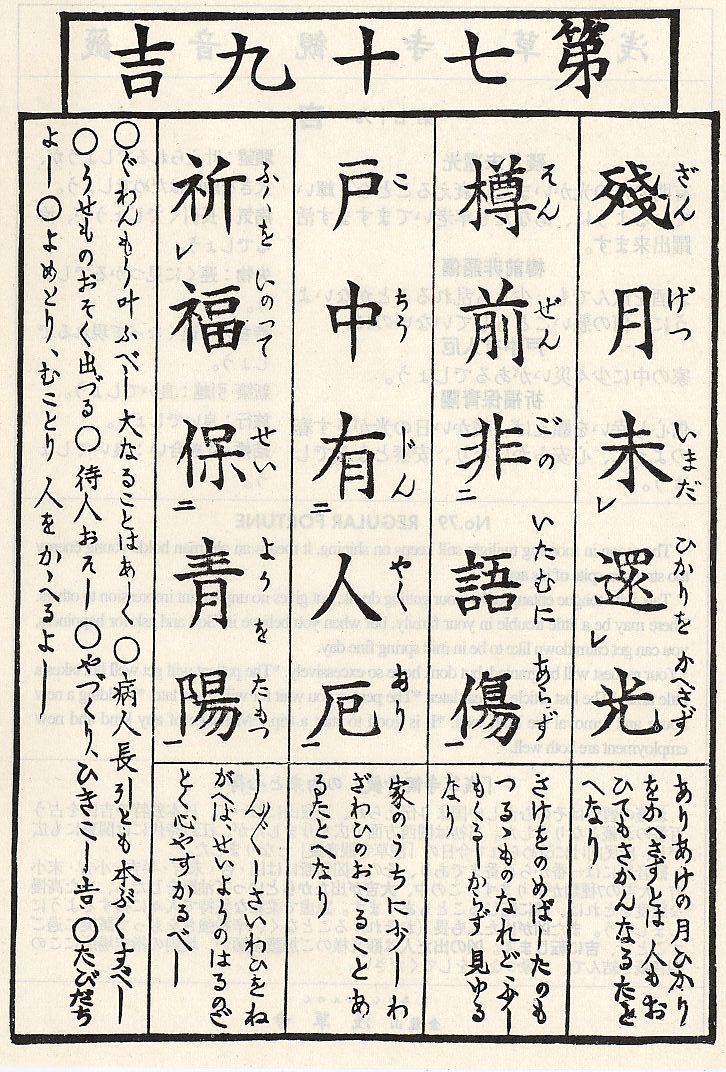 第七十九吉
殘月未還光
ざんげついまだひかりをかへさず
ありあけの月ひかり
をかへさずとは 人もお
ひてもさかんなるたと
へなり
樽前非語傷
そんぜんごのいたみにあらず
さけをのめばしたのも
つるゝものなれど少し
もるしからず見ゆる
なり
戸中有人厄
こちうじんやくあり
家のうちに少しわ
ざわひのおこるとあ
るたとへなり
祈福保青陽
ふくをいのつてせいようをたもつ
しん〴〵しさいわひをね
がへばせいようのはるのご
とく心やすかるべし
○ぐわんもう叶ふべし 大なることはあし ○病人長引とも本ぶくすべし
○うせものおそく出づる○待人おそし ○やづくり、ひきこし吉○たびだち
よし○よめとり、むことり 人をかゝへるよし